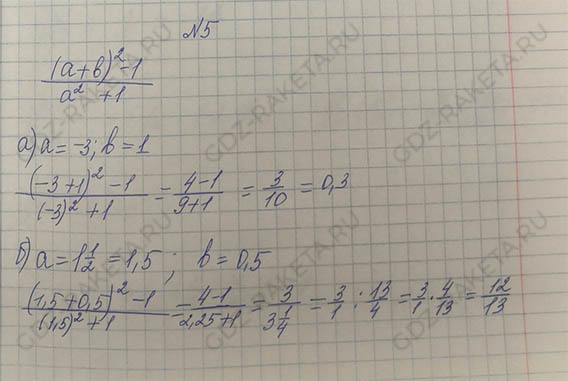 №5
(a+b)²-1 / a²+1
а) a = -3; b = 1
(-3+1)²-1 / (-3)²+1 = 4-1 / 9+1 = 3/10 = 0,3
б) a = 1 1/2 = 1,5; b = 0,5
(1,5+0,5)²-1 / (1,5)²+1 = 4-1 / 2,25+1 = 3 / 3 1/4 = 3/1 : 13/4 = 3/1 · 4/13 = 12/13
GDZ-RAKETA.RU
GDZ-RAKETA.RU
GDZ-RAKETA.RU
GDZ-RAKETA.RU
GDZ-RAKETA.RU
GDZ-RAKETA.RU